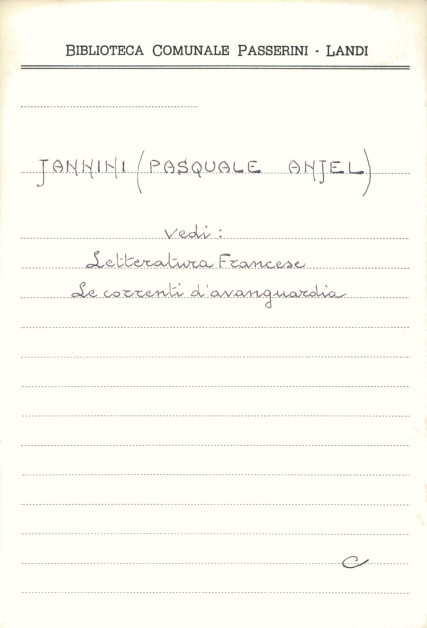 BIBLIOTECA COMUNALE PASSERINI - LANDI
JANNINI (PASQUALE ANJEL)
vedi:
Letteratura Francese
Le correnti d'avanguardia
C